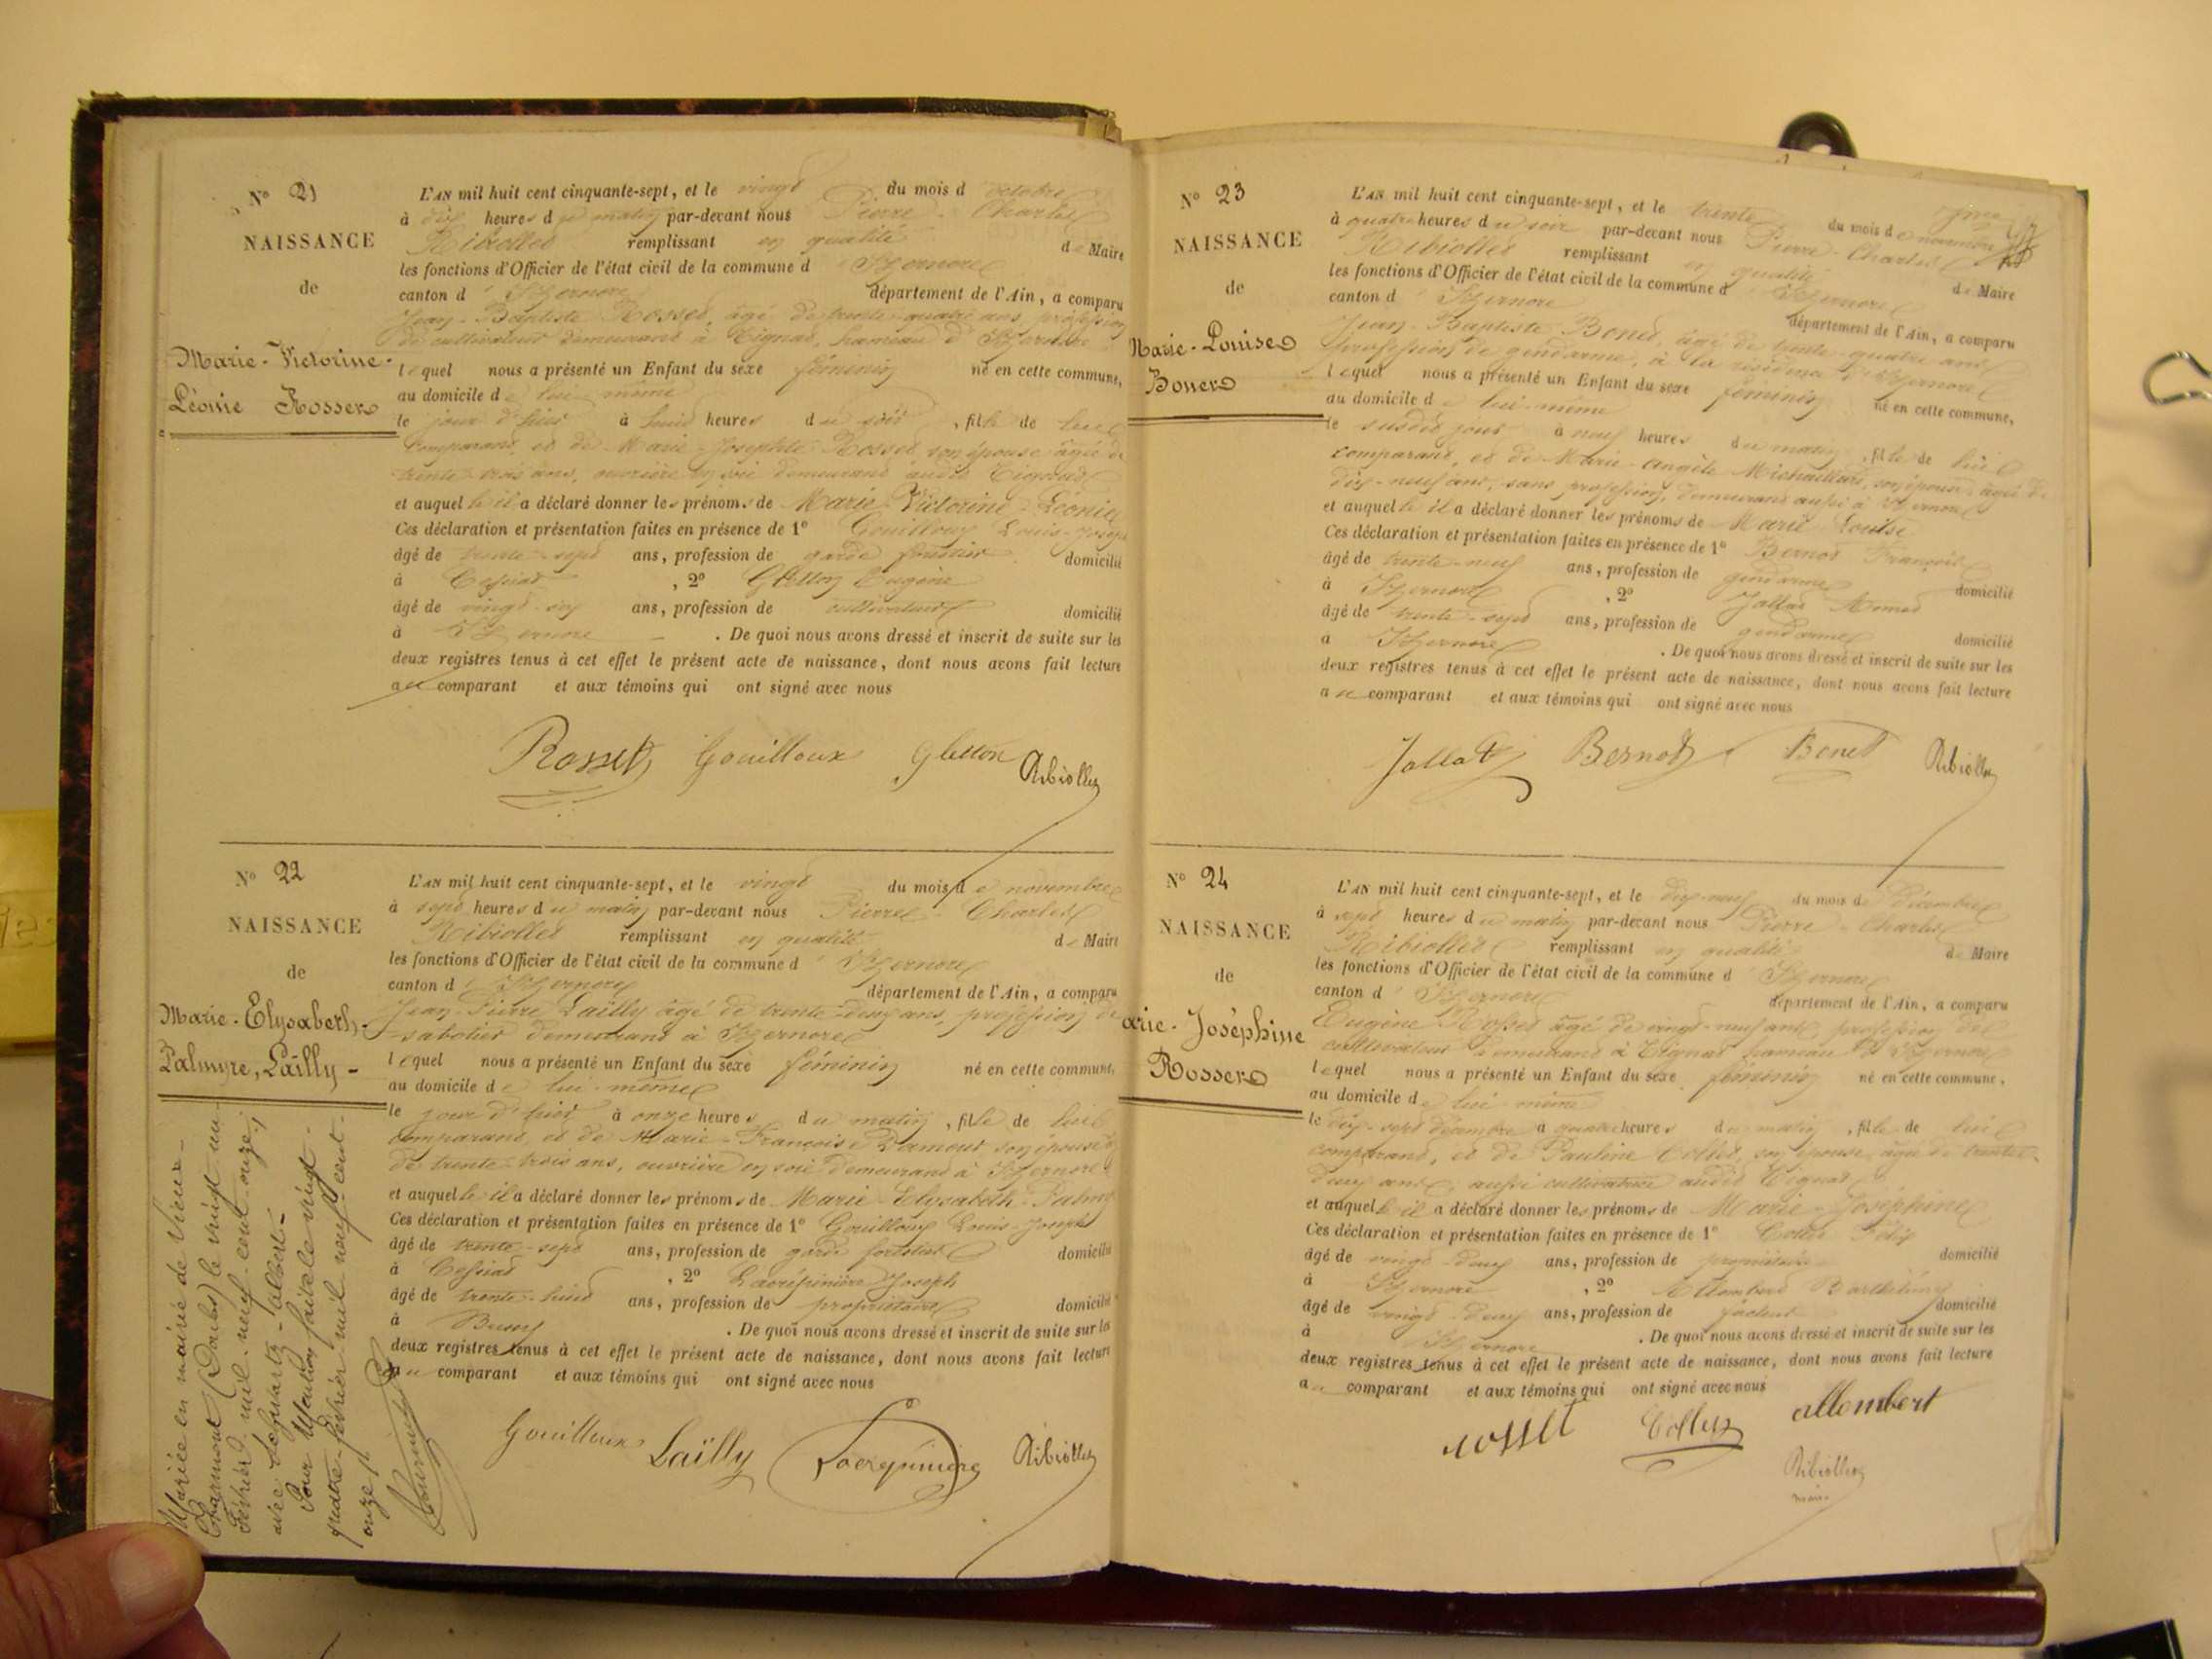 N° 21
NAISSANCE
de
Marie-Victorine-
Léonie Rosset
L'AN mil huit cent cinquante-sept, et le vingt du mois d'octobre
à dix heures du matin par-devant nous Pierre-Charles
Ribiollet remplissant en qualité de Maire
les fonctions d'Officier de l'état civil de la commune d'Izernore
canton d'Izernore département de l'Ain, a comparu
Jean-Baptiste Rosset, âgé de trente-quatre ans, profession
de cultivateur demeurant à Tignat, hameau d'Izernore
lequel nous a présenté un Enfant du sexe féminin né en cette commune,
au domicile de lui-même
le jour d'hier à huit heures du soir, fille de lui
comparant, et de Marie-Josephte Rosset son épouse âgée de
trente-trois ans, ouvrière en soie demeurant audit Tignat
et auquel le il a déclaré donner les prénoms de Marie-Victorine-Léonie
Ces déclaration et présentation faites en présence de 1° Gouilloux Louis-Joseph
âgé de trente-sept ans, profession de garde forestier domicilié
à Cessiat, 2° Gletton Eugène
âgé de vingt-six ans, profession de cultivateur domicilié
à Izernore. De quoi nous avons dressé et inscrit de suite sur les
deux registres tenus à cet effet le présent acte de naissance, dont nous avons fait lecture
au comparant et aux témoins qui ont signé avec nous
Rosset Gouilloux Gletton Ribiollet
N° 22
NAISSANCE
de
Marie-Elysabeth-
Palmyre, Laïlly-
L'AN mil huit cent cinquante-sept, et le vingt du mois de novembre
à sept heures du matin par-devant nous Pierre-Charles
Ribiollet remplissant en qualité de Maire
les fonctions d'Officier de l'état civil de la commune d'Izernore
canton d'Izernore département de l'Ain, a comparu
Jean-Pierre Laïlly âgé de trente-deux ans, profession de
sabotier demeurant à Izernore
lequel nous a présenté un Enfant du sexe féminin né en cette commune,
au domicile de lui-même
le jour d'hier à onze heures du matin, fille de lui
comparant, et de Marie-Françoise son épouse
de trente-trois ans, ouvrière en soie demeurant à Izernore
et auquel le il a déclaré donner les prénoms de Marie-Elysabeth-Palmy
Ces déclaration et présentation faites en présence de 1° Gouilloux Louis-Joseph
âgé de trente-sept ans, profession de garde forestier domicilié
à Cessiat, 2° Joseph
âgé de trente-huit ans, profession de propriétaire domicilié
à. De quoi nous avons dressé et inscrit de suite sur les
deux registres tenus à cet effet le présent acte de naissance, dont nous avons fait lecture
au comparant et aux témoins qui ont signé avec nous
Gouilloux Laïlly Ribiollet
Mariée en mairie de Vieux-
Charmont (Doubs) le vingt-un
Février mil-neuf-cent-onze;
avec albert-
Pour Mention faite le vingt-
quatre Février mil neuf cent
onze
N° 23
NAISSANCE
de
Marie-Louise
Bonet
L'AN mil huit cent cinquante-sept, et le trente du mois de novembre
à quatre heures du soir par-devant nous Pierre-Charles
Ribiollet remplissant en qualité de Maire
les fonctions d'Officier de l'état civil de la commune d'Izernore
canton d'Izernore département de l'Ain, a comparu
Jean-Baptiste Bonet, âgé de trente-quatre ans
profession de gendarme, à la résidence d'Izernore
lequel nous a présenté un Enfant du sexe féminin né en cette commune,
au domicile de lui-même
le susdit jour à neuf heures du matin, fille de lui
comparant, et de Marie-Angèle son épouse âgée de
dix-neuf ans, sans profession, demeurant aussi à Izernore
et auquel le il a déclaré donner les prénoms de Marie-Louise
Ces déclaration et présentation faites en présence de 1° Bernot François
âgé de trente-neuf ans, profession de gendarme domicilié
à Izernore, 2° Jallat
âgé de trente-sept ans, profession de gendarme domicilié
à Izernore. De quoi nous avons dressé et inscrit de suite sur les
deux registres tenus à cet effet le présent acte de naissance, dont nous avons fait lecture
au comparant et aux témoins qui ont signé avec nous
Jallat Bernot Bonet Ribiollet
N° 24
NAISSANCE
de
arie-Joséphine
Rosset
L'AN mil huit cent cinquante-sept, et le dix-neuf du mois de Décembre
à sept heures du matin par-devant nous Pierre-Charles
Ribiollet remplissant en qualité de Maire
les fonctions d'Officier de l'état civil de la commune d'Izernore
canton d'Izernore département de l'Ain, a comparu
Eugène Rosset âgé de vingt-neuf ans, profession de
cultivateur demeurant à Tignat hameau d'Izernore
lequel nous a présenté un Enfant du sexe féminin né en cette commune,
au domicile de lui-même
le dix-sept décembre à quatre heures du matin, fille de lui
comparant, et de Pauline Collet, son épouse, âgée de trente-
deux ans, aussi cultivatrice audit Tignat
et auquel le il a déclaré donner les prénoms de Marie-Joséphine
Ces déclaration et présentation faites en présence de 1° Collet Félix
âgé de vingt-deux ans, profession de propriétaire domicilié
à Izernore, 2° Allombert Barthélémy
âgé de vingt-deux ans, profession de facteur domicilié
à Izernore. De quoi nous avons dressé et inscrit de suite sur les
deux registres tenus à cet effet le présent acte de naissance, dont nous avons fait lecture
au comparant et aux témoins qui ont signé avec nous
rosset Collet allombert
Ribiollet